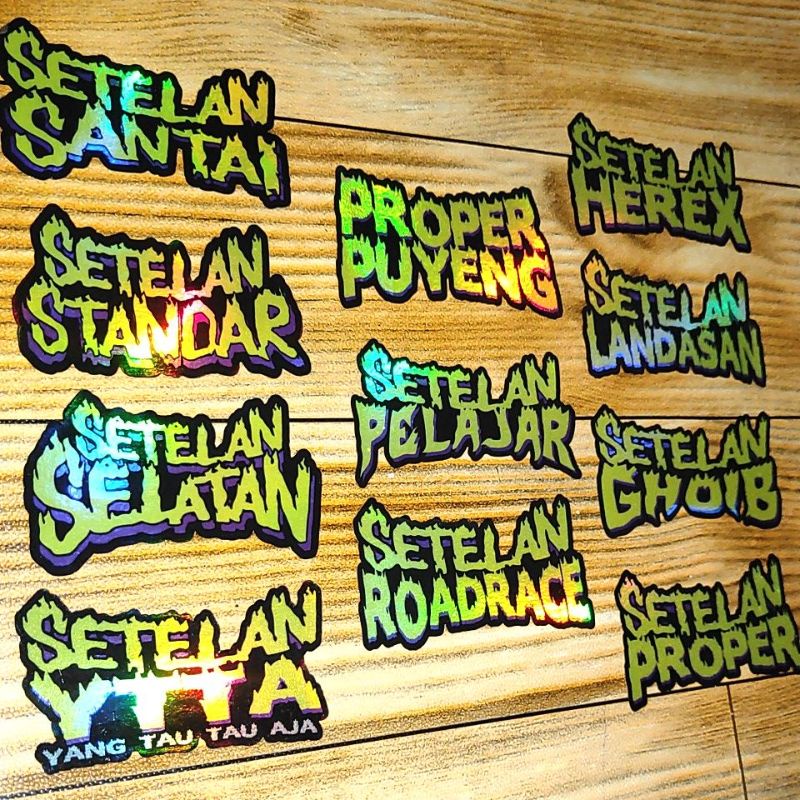 SETELAN
SANTAI
SETELAN
STANDAR
SETELAN
SELATAN
SETELAN
YTTA
YANG TAU TAU AJA
PROPER
PUYENG
SETELAN
PELAJAR
SETELAN
ROADRACE
SETELAN
HEREX
SETELAN
LANDASAN
SETELAN
GHOIB
SETELAN
PROPER